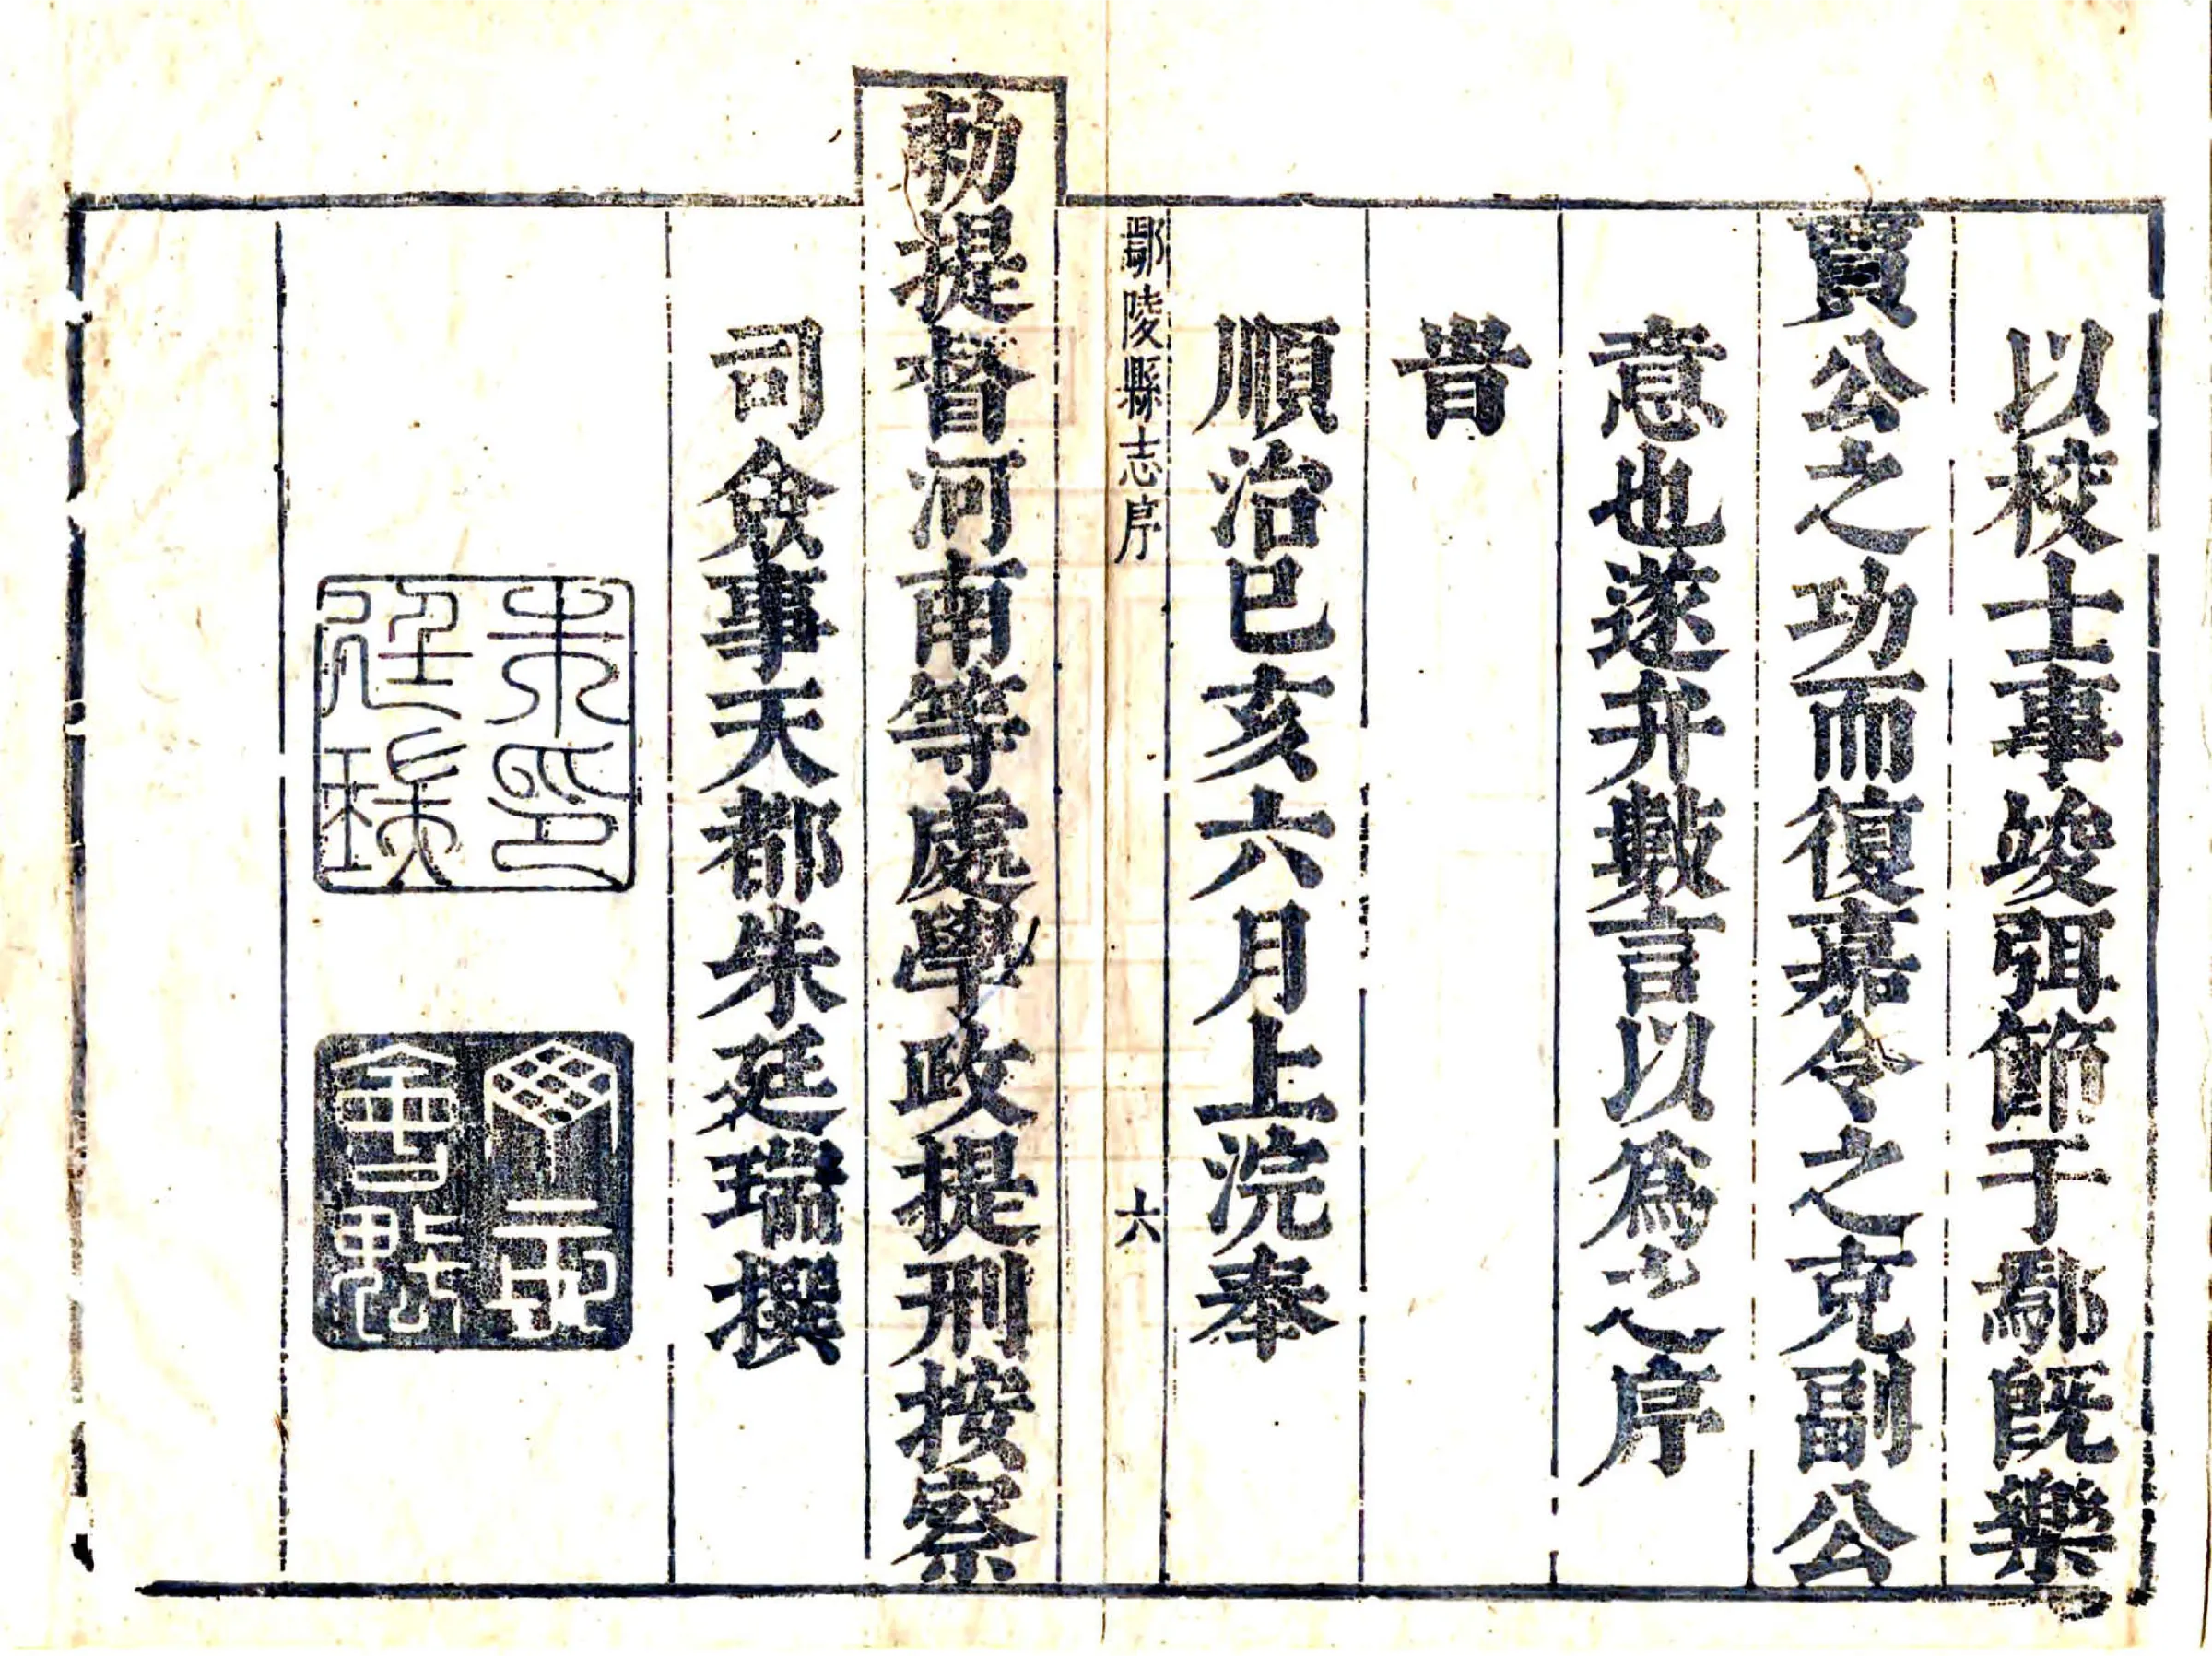 以校士事竣弭節于鄢旣樂
賈公之功而復嘉令之克副公
意也遂弁數言以爲之序
旹
順治己亥六月上浣奉
鄢陵縣志序
六
勅提督河南等處學政提刑按察
司僉事天都朱廷瑞撰
朱廷瑞印